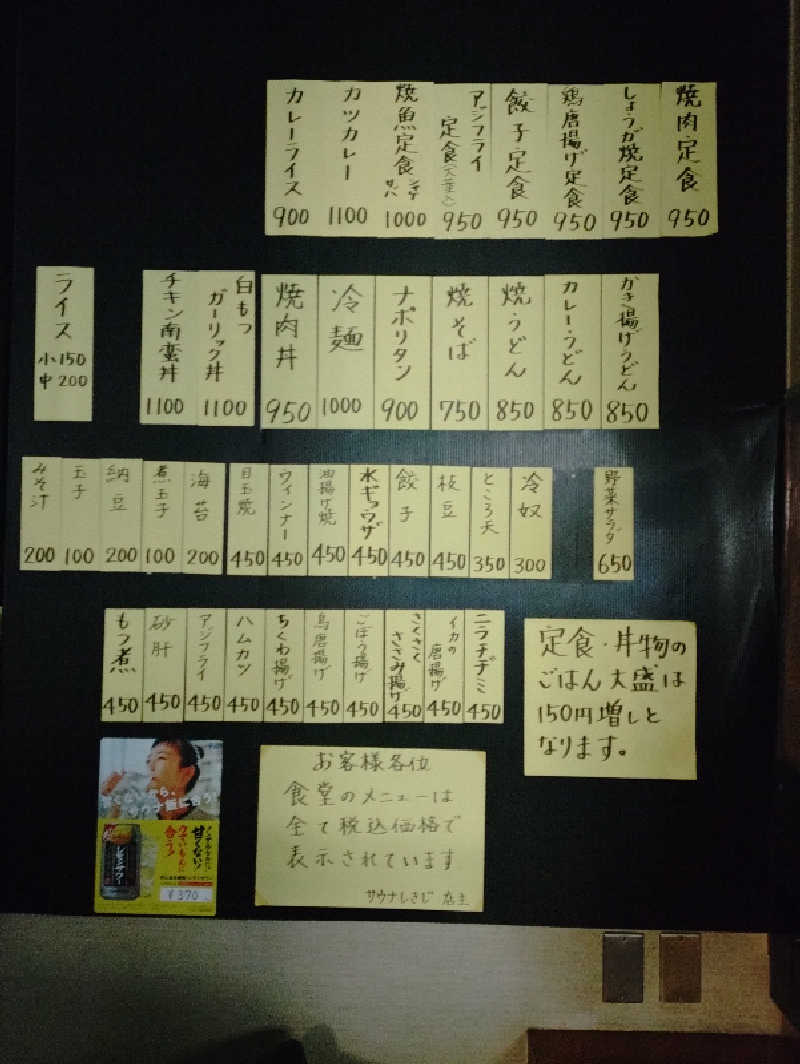 焼肉定食 950
しょうが焼定食 950
鶏唐揚げ定食 950
餃子定食 950
アジフライ
定食(大葉入) 950
焼魚定食 シャケ サバ 1000
カツカレー 1100
カレーライス 900
かき揚げうどん 850
カレーうどん 850
焼うどん 850
焼そば 750
ナポリタン 900
冷麺 1000
焼肉丼 950
白もつ
ガーリック丼 1100
チキン南蛮丼 1100
ライス
小150
中200
野菜サラダ 650
冷奴 300
ところ天 350
枝豆 450
餃子 450
水ギョウザ 450
油揚げ焼 450
ウィンナー 450
目玉焼 450
海苔 200
煮玉子 100
納豆 200
玉子 100
みそ汁 200
ニラチヂミ 450
イカの
唐揚げ 450
さくさく
ささみ揚げ 450
ごぼう揚げ 450
鳥唐揚げ 450
ちくわ揚げ 450
ハムカツ 450
アジフライ 450
砂肝 450
もつ煮 450
定食・丼物の
ごはん大盛は
150円増しと
なります。
お客様各位
食堂のメニューは
全て税込価格で
表示されています
サウナしきじ 店主
甘くない!
合う!
レモンサワー
¥370